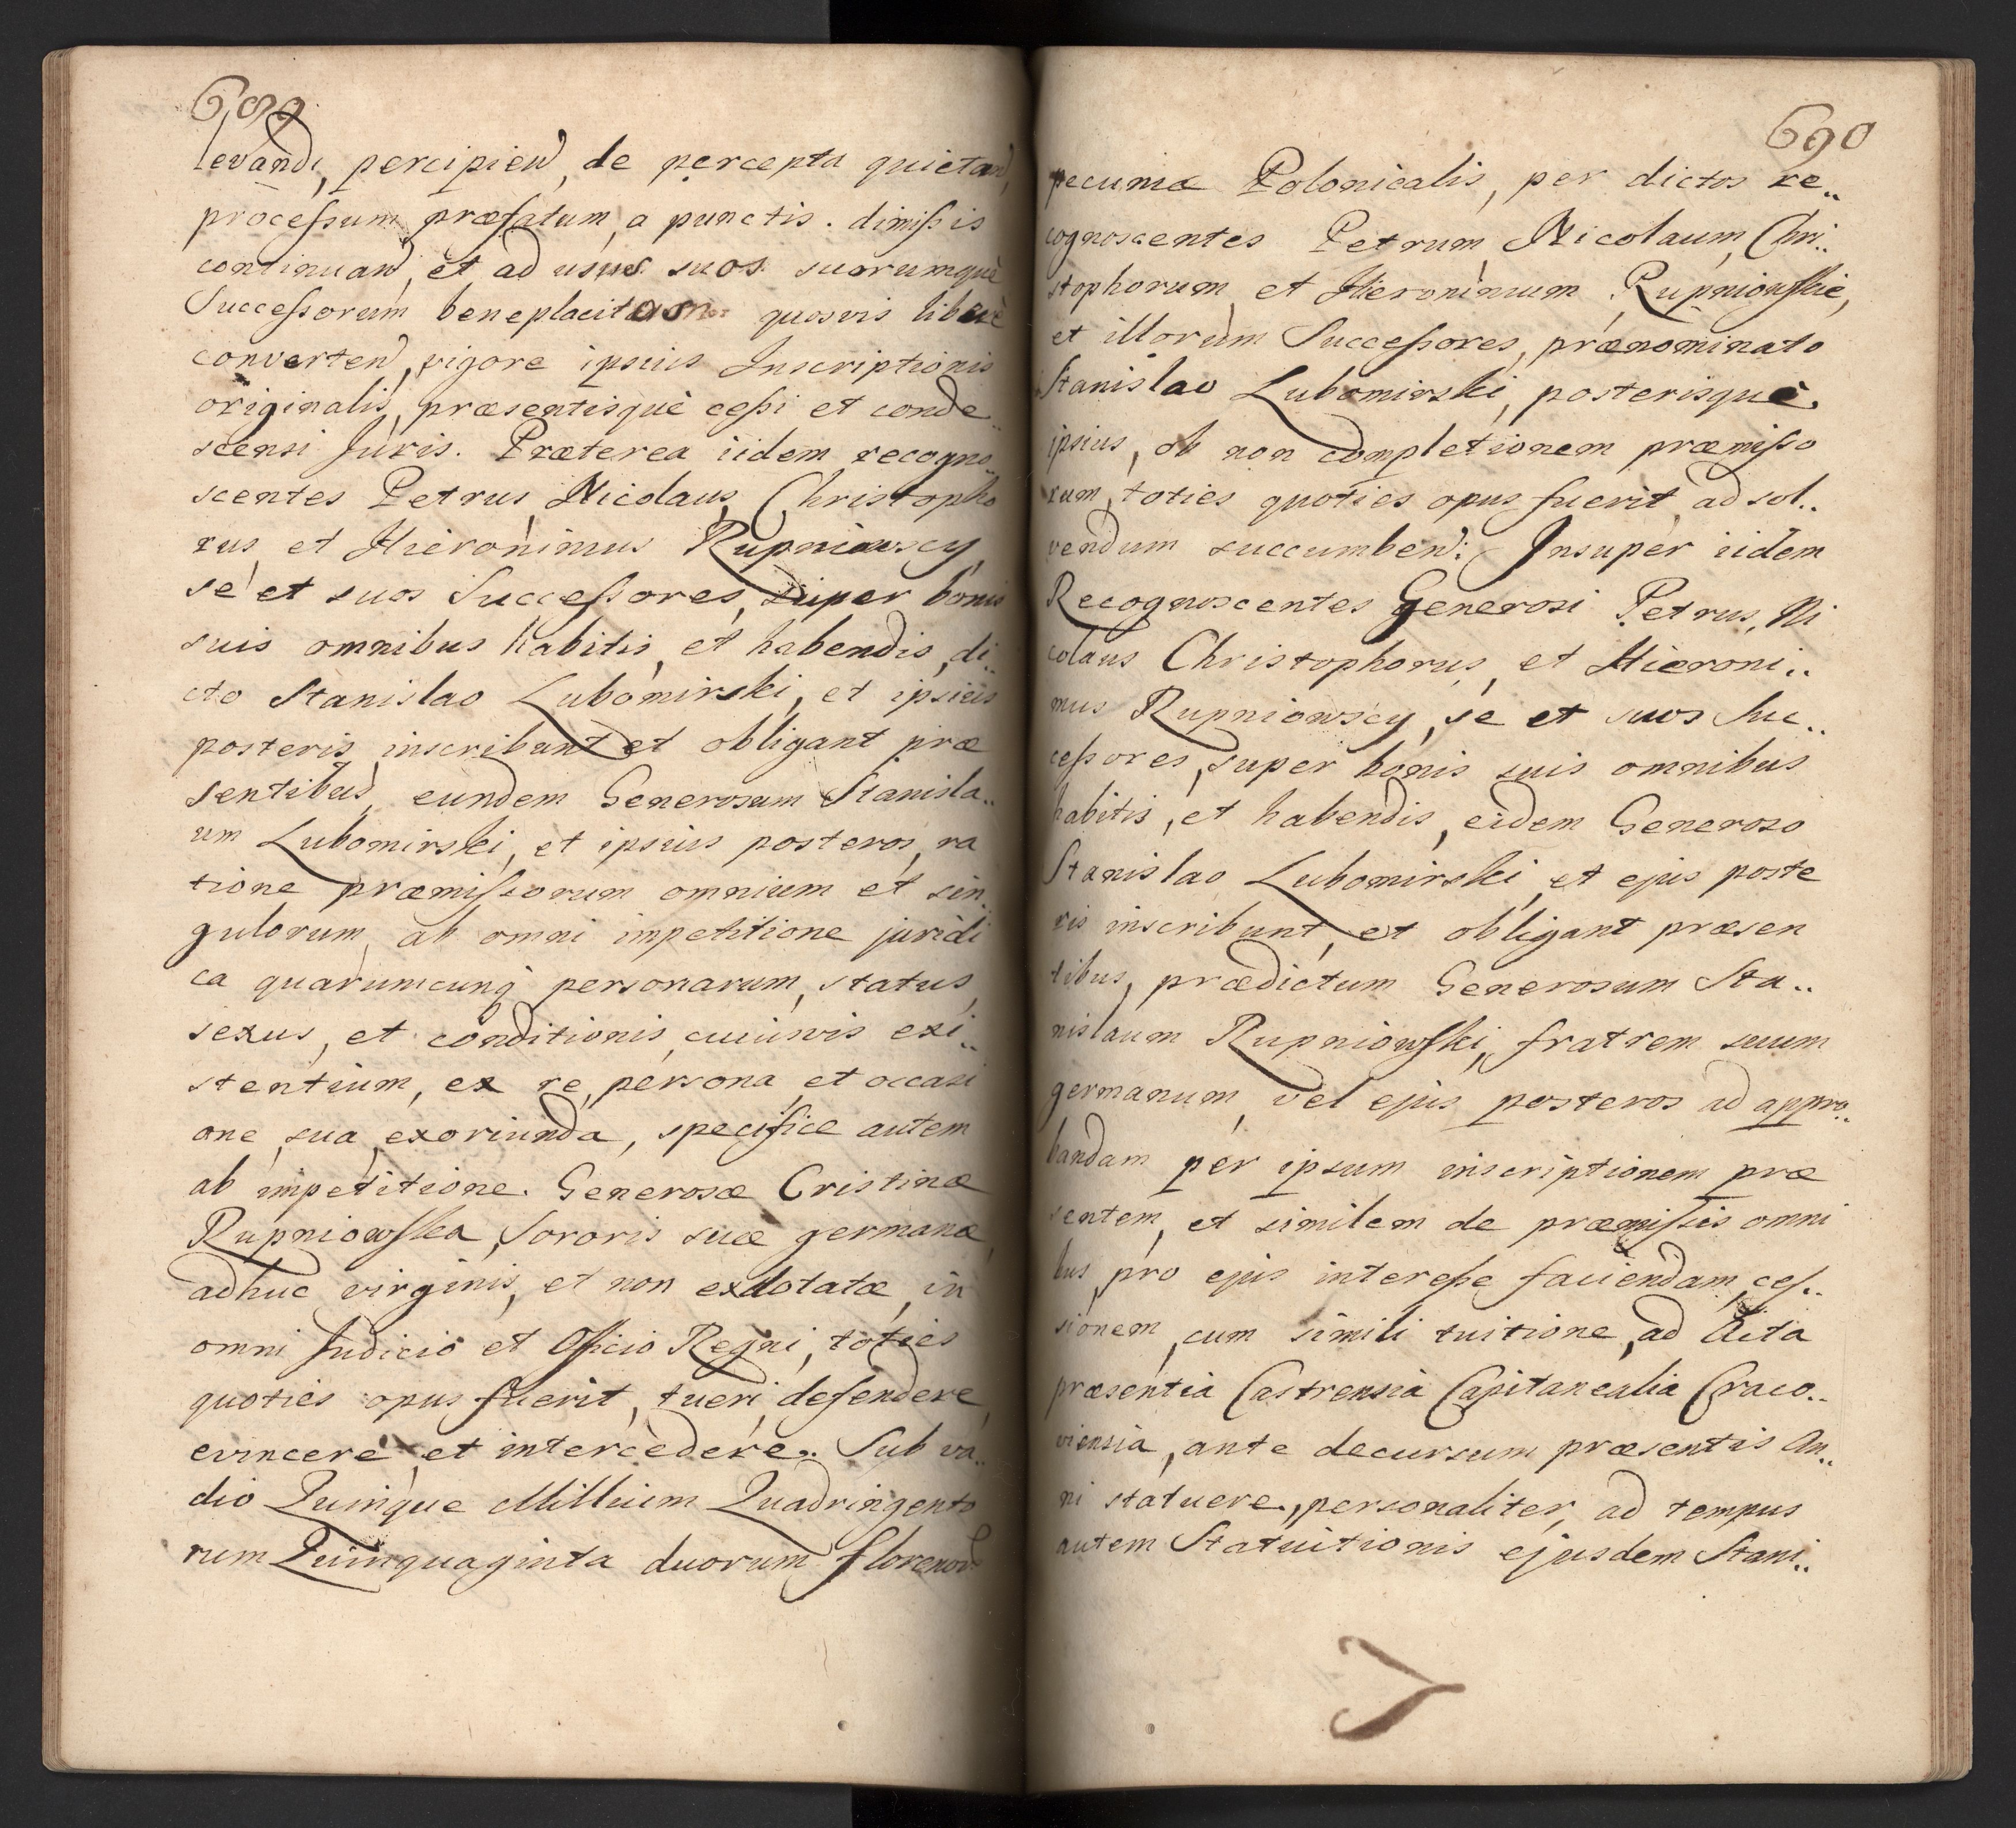 689
levandi, percipiend, de percepta quietand,
processum præfatum, a punctis. dimissis
continuand, et ad usus suos suorumquè
Successorum beneplacitos quosvis liberè
converten͂d, vigore ipsius Inscriptionis
originalis, præsentisquè cessi et conde..
scensi Juris. Præterea iidem recogno..
scentes Petrus, Nicolaus, Christopho
rus, et Hieronimus Rupniowscy,
se et suos Successores, super bonis
suis omnibus habitis, et habendis, di..
cto Stanislao Lubomirski, et ipsius
posteris inscribunt et obligant præ
sentibus, eundem Generosum Stanisla..
um Lubomirski, et ipsius posteros, ra
tione præmissorum omnium et sin
gulorum, ab omni impetitione juridi
ca quarumcunq personarum, status,
sexus, et conditionis cuiusvis exi..
stentium, ex re, persona, et occasi
one sua exoriunda, specifice autem
ab impetitione. Generosæ Cristinæ
Rupniowska, Sororis suæ germanæ,
adhuc virginis, et non exdotatæ, in
omni Judicio et Officio Regni, toties
quoties opus fuerit, tueri, defendere,
evincere et intercedere.. Sub va..
dio Quinque Millium Quadringento
rum Quinquaginta duorum florenor
690
pecuniæ Polonicalis, per dictos re..
cognoscentes Petrum, Nicolaum, Chri..
stophorum et Hieronimum Rupniowskie,
et illorum Successores, prænominato
Stanislao Lubomirski, posterisquè.
ipsius, ob non completionem præmisso
rum, toties quoties opus fuerit, ad sol..
vendum succumbend: Insuper iidem
Recognoscentes Generosi Petrus, Ni
colaus Christophorus, et Hieroni..
mus Rupniowscy, se et suos Suc..
cessores, super bonis suis omnibus
habitis, et habendis, eidem Generoso
Stanislao Lubomirski et ejus poste
ris inscribunt, et obligant præsen
tibus, prædictum Generosum Sta..
nislaum Rupniowski, fratrem suum
germanum, vel ejus posteros ad appro..
bandam per ipsum inscriptionem præ
sentem, et similem de præmissis omni
bus, pro ejus interesse faciendam, ces..
sionem, cum simili tuitione, ad Acta
præsentia Castrensia Capitanealia Craco..
viensia, ante decursum præsentis An..
ni statuere, personaliter, ad tempus
autem Statuitionis ejusdem Stani..